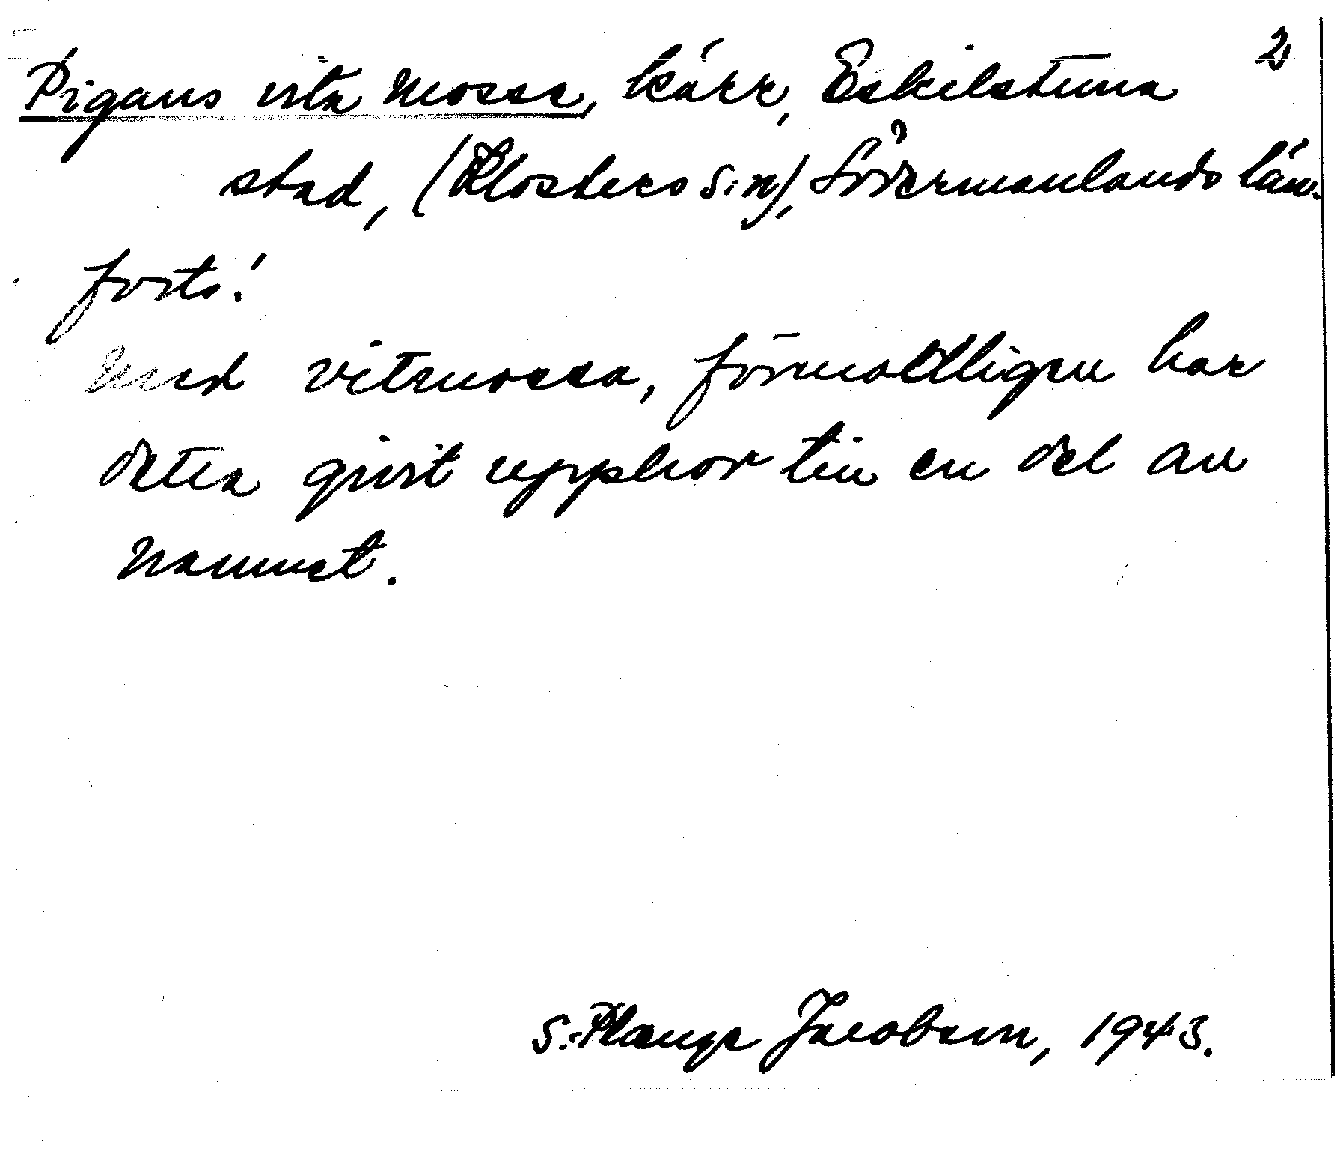 2
Pigans vita mosse, kärr, Eskilstuna
stad, (Klosters s:n), Södermanlands län.
forts!
med vitmossa, förmodligen har
detta givit upphov till en del av
namnet.
S. Plange Jacobson, 1943.